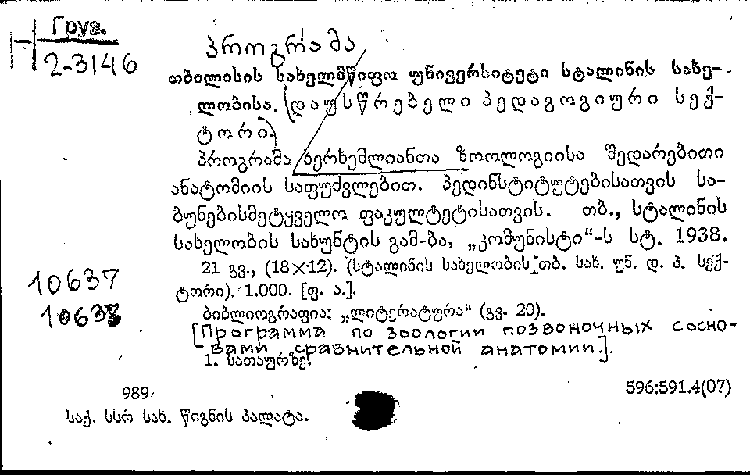 Груз.
2-3146
პროგრამა
თბილისის სახელმწიფო უნივერსიტეტი სტალინის სახე-
ლობისა. (დაუსწრებელი პედაგოგიური სექ-
ტორი)
პროგრამა ხერხემლიანთა ზოოლოგიისა შედარებითი
ანატომიის საფუძვლებით. პედინსტიტუტებისათვის სა-
ბუნებისმეტყველო ფაკულტეტისათვის. თბ., სტალინის
სახელობის სახუნტის გამ-ბა, „კომუნისტი“-ს სტ. 1938.
21 გვ., (18×12). (სტალინის სახელობის თბ. სახ. უნ. დ. პ. სექ-
ტორი). 1.000. [ფ. ა.].
10637
ბიბლიოგრაფია: „ლიტერატურა“ (გვ. 20).
10638
[Программа по зоологии позвоночных с осно-
вами сравнительной анатомии.].
1. სათაურზე.
989
596:591.4(07)
საქ. სსრ სახ. წიგნის პალატა.